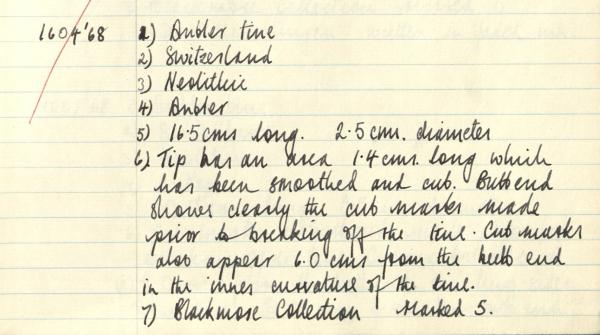 1604'68 1) Antler tine
2) Switzerland
3) Neolithic
4) Antler
5) 16.5cms long. 2.5cm. diameter
6) Tip has an area 1.4cms. long which
has been smoothed and cut. Butt end
shows clearly the cut marks made
prior to breaking off the tine. Cut marks
also appear 6.0 cms from the butt end
in the inner curvature of the tine.
7) Blackmore Collection Marked 5.